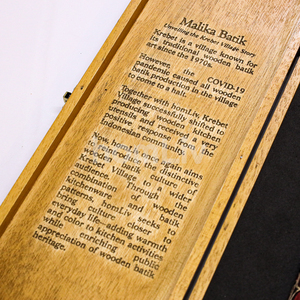 Malika Batik
Unveiling the Krebet Village Story
Krebet is a village known for
its traditional wooden batik
art since the 1970s.
However, the COVID-19
pandemic caused all wooden
batik production in the village
to come to a halt.
Together with homLiv, Krebet
Village successfully shifted to
producing wooden kitchen
utensils and received a very
positive response from the
Indonesian community.
Now homLiv again aims
to reintroduce the distinctive
wooden batik culture of
Krebet Village to a wider
audience. Through the
combination of wooden
kitchenware and batik
patterns, homLiv seeks to
bring culture closer to
everyday life, adding warmth
and color to kitchen activities
while enriching public
appreciation of wooden batik
heritage.